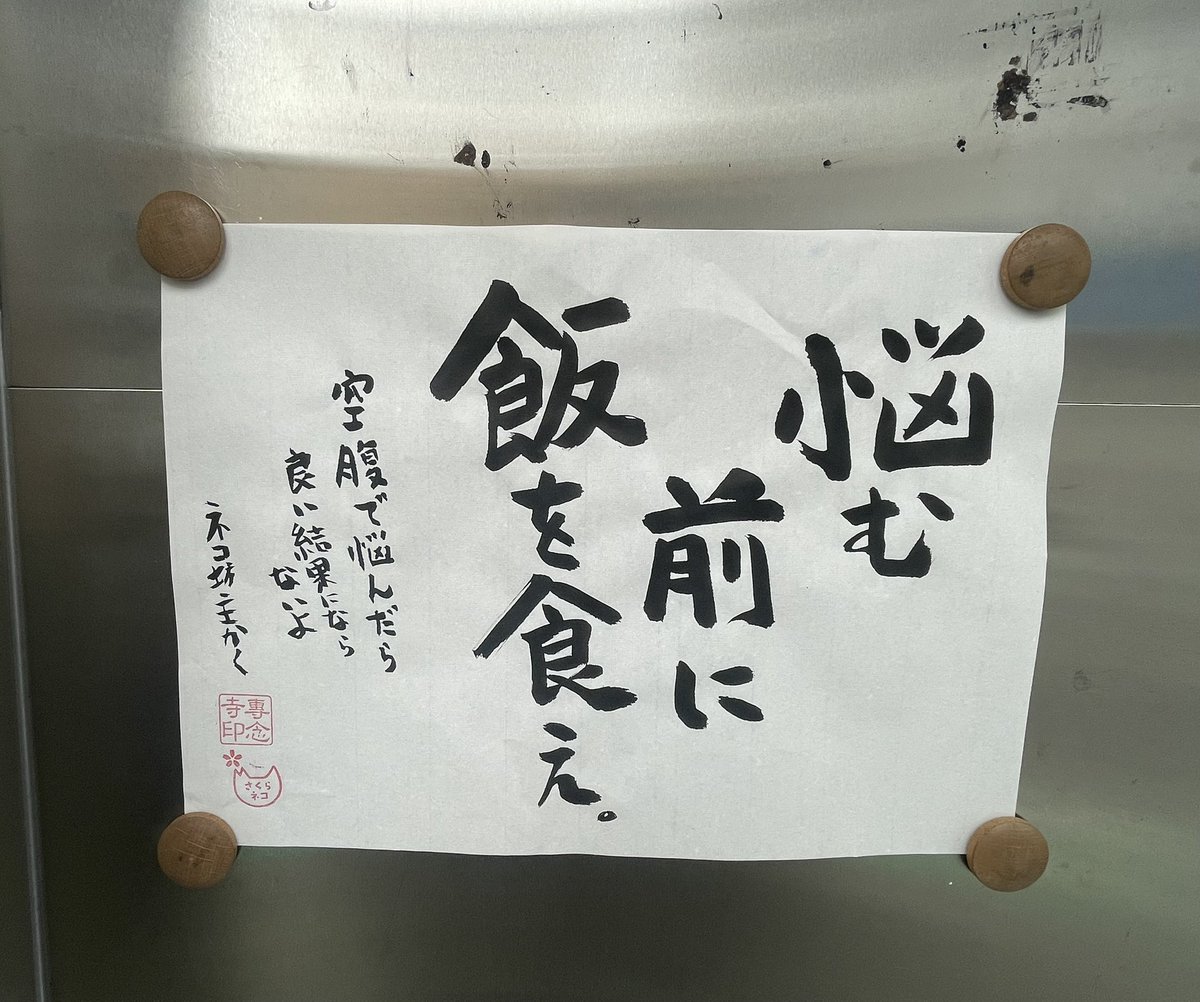 悩む
前に
飯を食え。
空腹で悩んだら
良い結果になら
ないよ
ネコ坊主かく
專念
寺印
さくら
ネコ